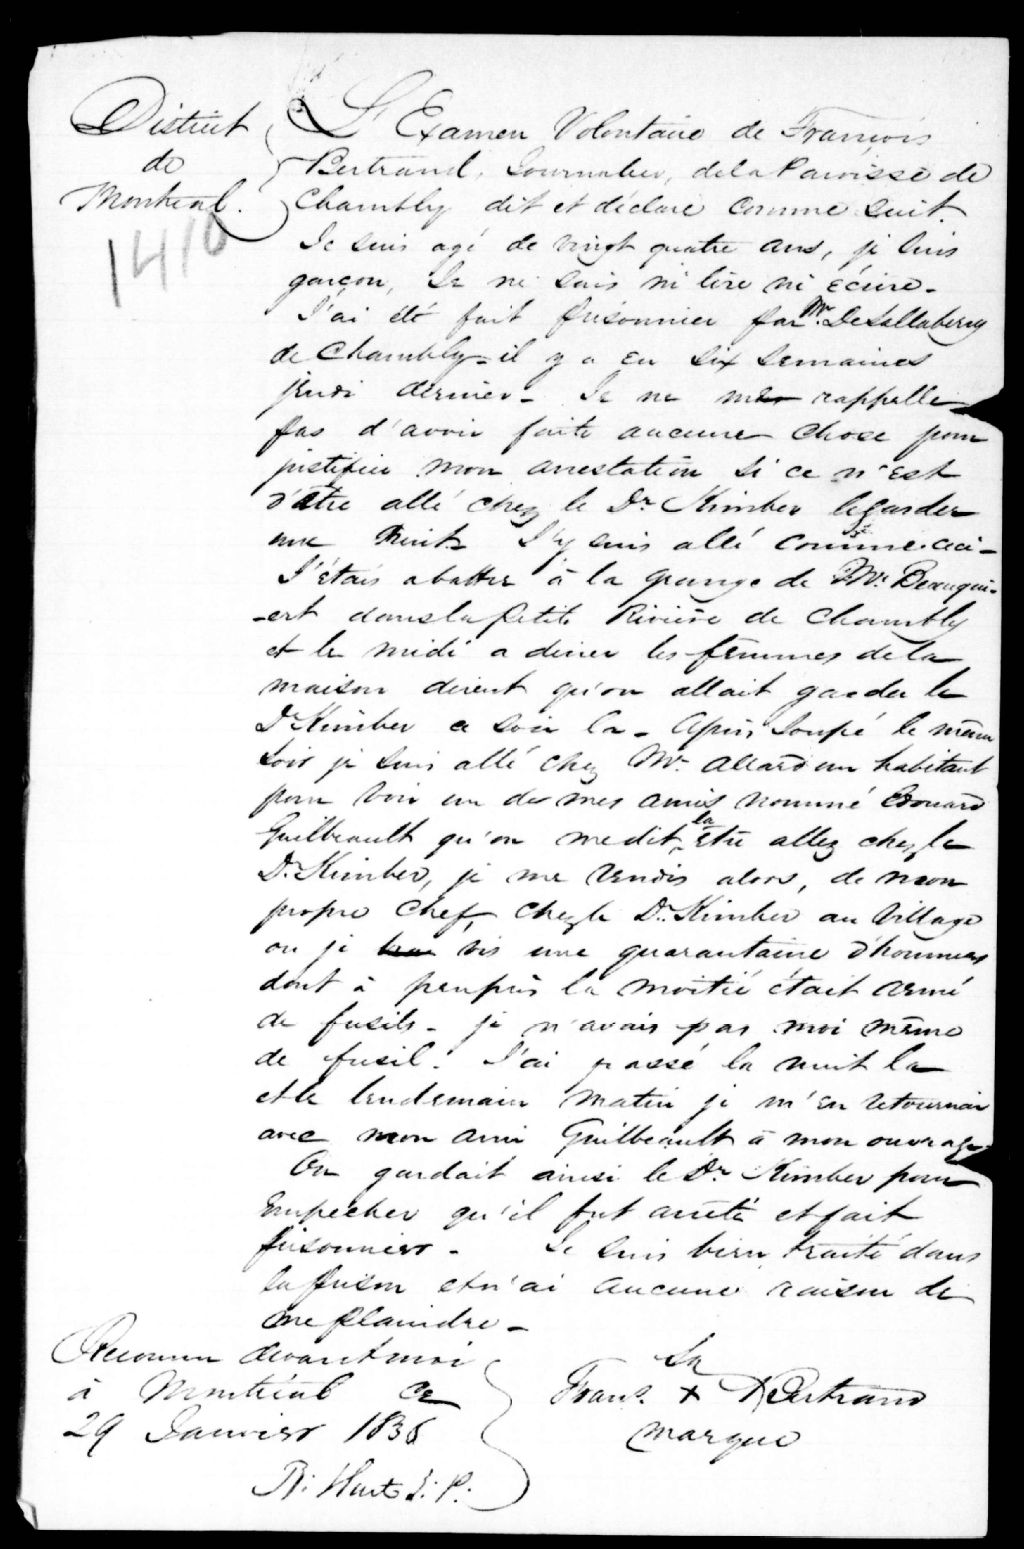 District
de
Montreal.
1410
L'Examen Volontaire de François
Bertrand, Journalier, dela Paroisse de
Chambly dit et déclare comme suit.
Je suis agé de vingt quatre ans, je suis
garçon, Je ne sais ni lire ni écrire -
J'ai été fait prisonnier par Mr. DeSallaberry
de Chambly - il y a eu six semaines
jeudi dernier - Je ne me rappelle
pas d'avoir faite aucune chose pour
justifier mon arrestation si ce n'est
d'être allé chez le Dr. Kimber le garder
une Nuit - J'y suis allé comme ceci -
J'étais a battre à la grange de Mr.
-ert dans la petite Rivière de Chambly
et le midi a diner les femmes dela
maison dirent qu'on allait garder le
Dr Kimber ce soir la - Après soupé le même
soir je suis allé chez Mr. Allard un habitant
pour voir un de mes amis nommé Edouard
Guilbeault qu'on me dit la être allez chez le
Dr. Kimber, je me rendis alors, de mon
propre chef, chez le Dr. Kimber au Village
ou je vis une quarantaine d'hommes
dont à peuprès la moitié était armé
de fusils - je n'avais pas moi même
de fusil. J'ai passé la nuit la
et le lendemain matin je m'en retournai
avec mon ami Guilbeault à mon ouvrage
On gardait ainsi le Dr. Kimber pour
empêcher qu'il fut arrêté et fait
prisonnier - Je suis bien traité dans
la prison et n'ai aucune raison de
me plaindre -
Reconnu devant moi
à Montréal ce
29 Janvier 1838
B. Hart J. P.
Sa
Frans. + Bertrand
marque